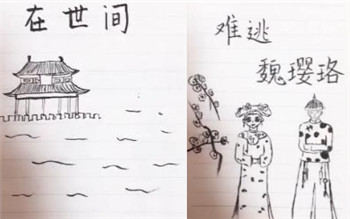 在世间
难逃
魏璎珞